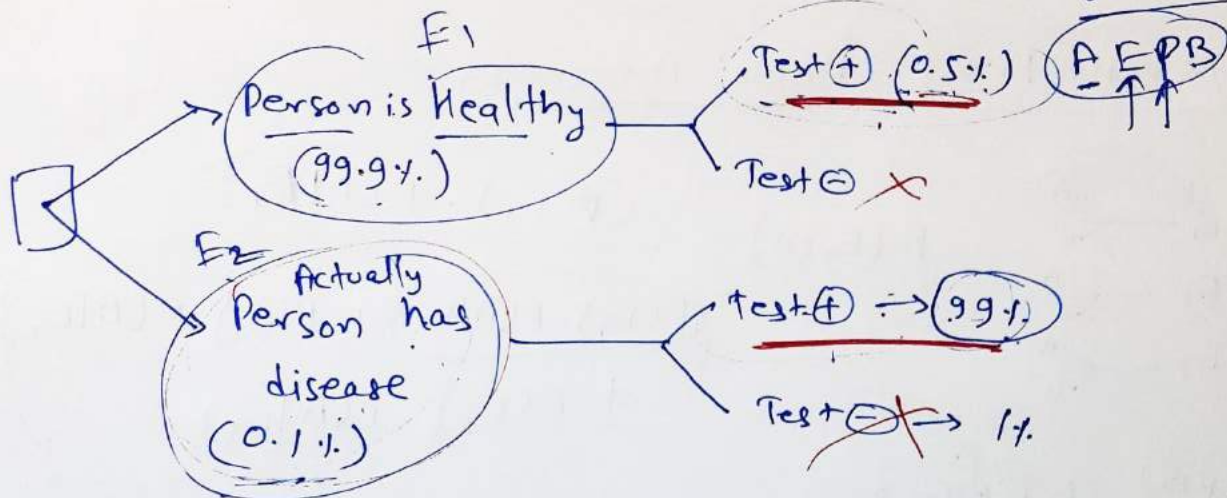 E1
Person is Healthy
(99.9%)
Test ⊕ (0.5%)
A E P B
Test ⊖
E2
Actually
Person has
disease
(0.1%)
Test ⊕ → 99%
Test ⊖ → 1%